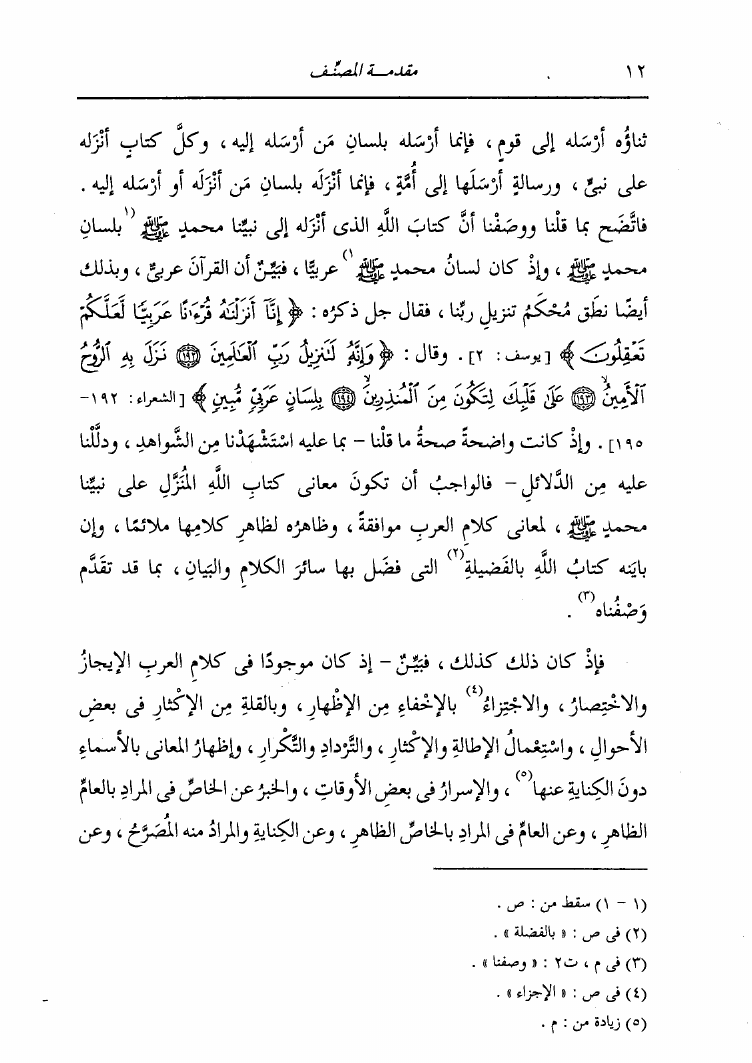 ١٢
مقدمـة المصنِّـف
ثناؤُه أرْسَله إلى قومٍ ، فإنما أرْسَله بلسانِ مَن أرْسَله إليه ، وكلَّ كتابٍ أنْزَله
على نبيٍّ ، ورسالةٍ أرْسَلَها إلى أُمَّةٍ ، فإنما أنْزَله بلسانِ مَن أنْزَله أو أرْسَله إليه .
فاتَّضَح بما قلْنا ووصَفْنا أنَّ كتابَ اللَّهِ الذى أنْزَله إلى نبيِّنا محمدٍ ﷺ (١بلسانِ
محمدٍ ﷺ ، وإذْ كان لسانُ محمدٍ ﷺ١) عربيًّا ، فبَيِّنٌ أن القرآنَ عربىٌّ ، وبذلك
أيضًا نطَق مُحْكَمُ تنزيلِ ربِّنا ، فقال جل ذكرُه : ﴿ إِنَّآ أَنزَلْنَٰهُ قُرْءَٰنًا عَرَبِيًّا لَّعَلَّكُمْ
تَعْقِلُونَ ﴾ [يوسف : ٢] . وقال : ﴿ وَإِنَّهُۥ لَتَنزِيلُ رَبِّ ٱلْعَٰلَمِينَ ﴿١٩٢﴾ نَزَلَ بِهِ ٱلرُّوحُ
ٱلْأَمِينُ ﴿١٩٣﴾ عَلَىٰ قَلْبِكَ لِتَكُونَ مِنَ ٱلْمُنذِرِينَ ﴿١٩٤﴾ بِلِسَانٍ عَرَبِيٍّ مُّبِينٍ ﴾ [الشعراء : ١٩٢-
١٩٥] . وإذْ كانت واضحةً صحةُ ما قلْنا - بما عليه اسْتَشْهَدْنا مِن الشَّواهدِ ، ودلَّلْنا
عليه مِن الدَّلائلِ - فالواجبُ أن تكونَ معانى كتابِ اللَّهِ المُنَزَّلِ على نبيِّنا
محمدٍ ﷺ ، لمعانى كلامِ العربِ موافقةً ، وظاهرُه لظاهرِ كلامِها ملائمًا ، وإن
بايَنه كتابُ اللَّهِ بالفَضيلةِ(٢) التى فضَل بها سائرَ الكلامِ والبَيانِ ، بما قد تقَدَّم
وَصْفُناه(٣) .
فإذْ كان ذلك كذلك ، فبَيِّنٌ - إذ كان موجودًا فى كلامِ العربِ الإيجازُ
والاخْتِصارُ ، والاجْتِزاءُ(٤) بالإخْفاءِ مِن الإظْهارِ ، وبالقلةِ مِن الإكْثارِ فى بعضِ
الأحوالِ ، واسْتِعْمالُ الإطالةِ والإكْثارِ ، والتَّرْدادِ والتَّكْرارِ ، وإظهارُ المعانى بالأسماءِ
دونَ الكِنايةِ عنها(٥) ، والإسرارُ فى بعضِ الأوقاتِ ، والخبرُ عن الخاصِّ فى المرادِ بالعامِّ
الظاهرِ ، وعن العامِّ فى المرادِ بالخاصِّ الظاهرِ ، وعن الكِنايةِ والمرادُ منه المُصَرَّحُ ، وعن
(١ - ١) سقط من : ص .
(٢) فى ص : « بالفضلة » .
(٣) فى م ، ت٢ : « وصفنا » .
(٤) فى ص : « الإجزاء » .
(٥) زيادة من : م .